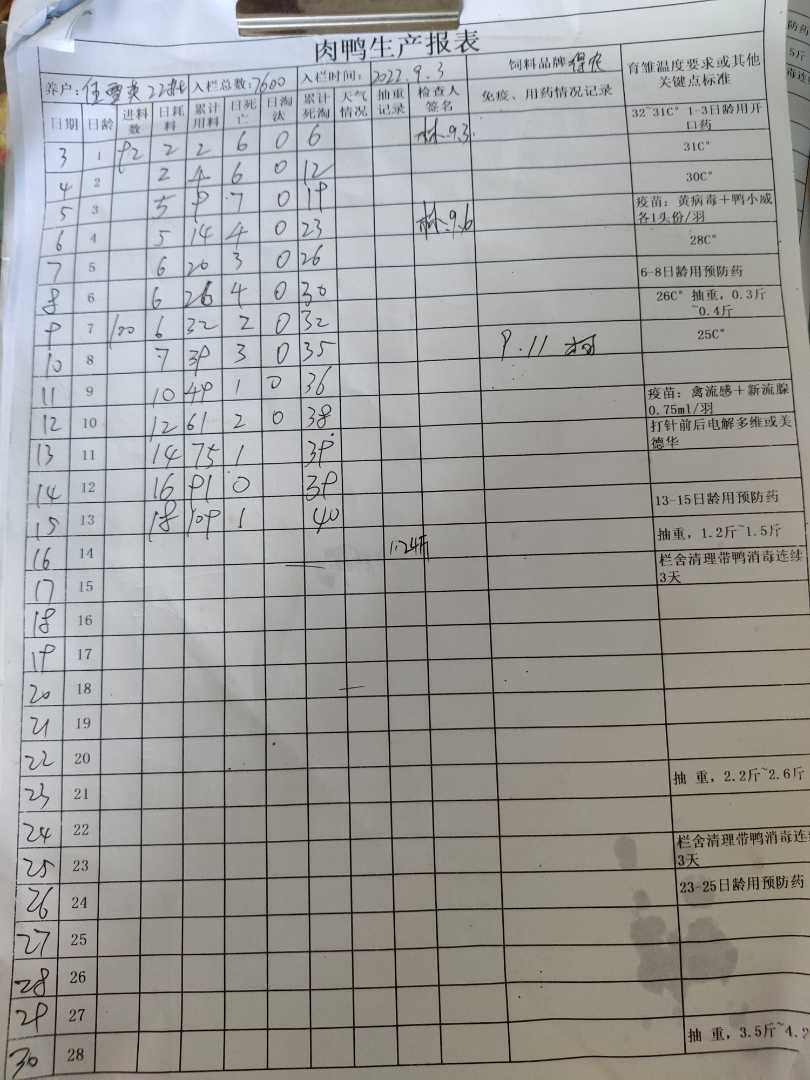 肉鸭生产报表
养户: 22批 入栏总数:7600 入栏时间: 2022.9.3 饲料品牌 得农 育雏温度要求或其他关键点标准
日期 日龄 进料数 日耗料 累计用料 日死亡 日淘汰 累计死淘 天气情况 抽重记录 检查人签名 免疫、用药情况记录 32~31C° 1-3日龄用开口药
3 1 92 2 2 6 0 6 林.9.3. 31C°
4 2 2 4 6 0 12 30C°
5 3 5 9 7 0 19 疫苗:黄病毒+鸭小威各1头份/羽
6 4 5 14 4 0 23 林.9.6 28C°
7 5 6 20 3 0 26
8 6 6 26 4 0 30 6-8日龄用预防药
9 7 100 6 32 2 0 32 26C° 抽重,0.3斤~0.4斤
10 8 7 39 3 0 35 9.11 25C°
11 9 10 49 1 0 36
12 10 12 61 2 0 38 疫苗:禽流感+新流腺0.75ml/羽
13 11 14 75 1 39 打针前后电解多维或美德华
14 12 16 91 0 39
15 13 18 109 1 40 13-15日龄用预防药
16 14 1.24斤 抽重,1.2斤~1.5斤
17 15 栏舍清理带鸭消毒连续3天
18 16
19 17
20 18
21 19
22 20
23 21 抽 重,2.2斤~2.6斤
24 22
25 23 栏舍清理带鸭消毒连续3天
26 24 23-25日龄用预防药
27 25
28 26
29 27
30 28 抽 重,3.5斤~4.2